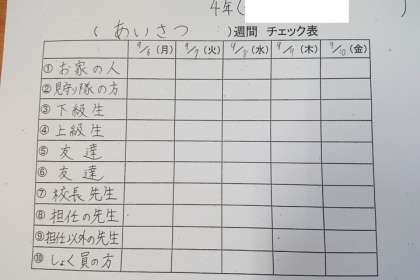 4年( )
(あいさつ)週間 チェック表
9/6(月) 9/7(火) 9/8(水) 9/9(木) 9/10(金)
①お家の人
②見守り隊の方
③下級生
④上級生
⑤友達
⑥友達
⑦校長先生
⑧担任の先生
⑨担任以外の先生
⑩しょく員の方